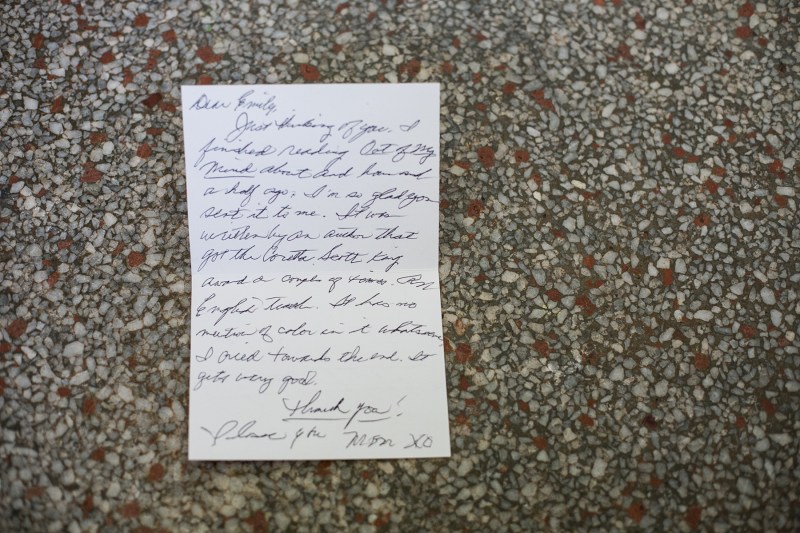 Dear Emily,
Just thinking of you. I
finished reading Out of My
Mind about and hour and
a half ago. I'm so glad you
sent it to me. It was
written by an author that
got the Coretta Scott King
award a couple of times. An
English Teach. It has no
mention of color in it whatsoever,
I cried towards the end. It
gets very good.
Thank you!
Please Mom XO